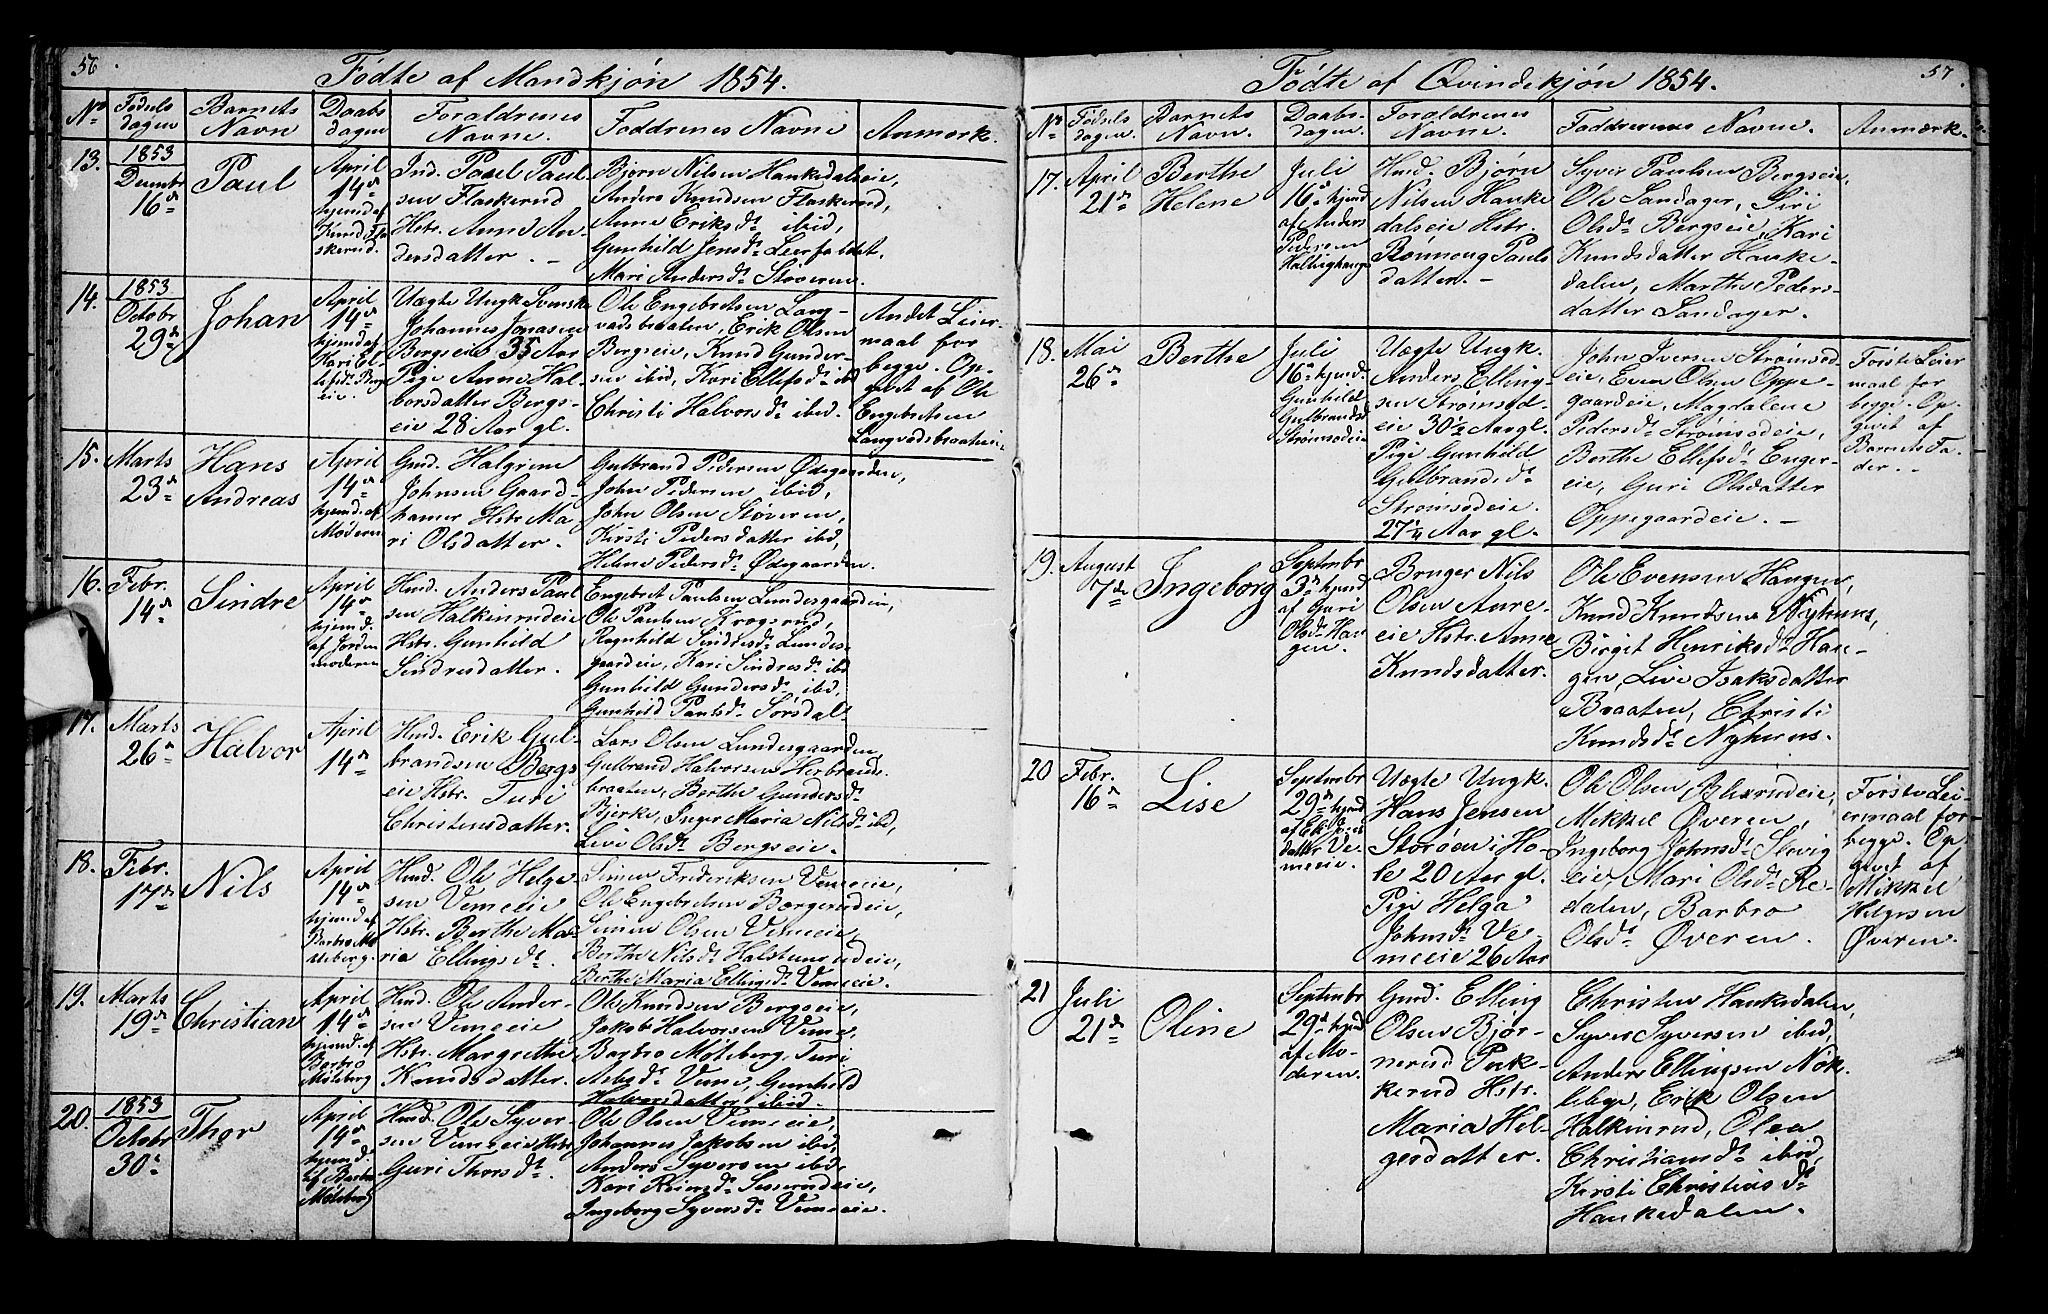 56
Födte af Mandkjön 1854.
No
Födsels dagen
Barnets Navn
Daabs dagen
Foraldrenes Navne.
Faddrenes Navne
Anmærk.
13.
1853
Decembr
16de
Paul
April
14de
hjemd. af
Knud Fla
skerud.
Ind. Paul Paul
sen Flaskerud
Hstr. Anne An
dersdatter. -
Bjørn Nilsen Hankedalseie,
Anders Knudsen Flaskerud,
Anne Eriksdr ibid,
Gunhild Jensdr Leerfaldet,
Mari Andersdr Støveren.
14.
1853
Octobr
29de
Johan
April
14de
hjemd. af
Kari El
lefsdr Bergs
eie.
Uægte Ungk. Svenske
Johannes Jonasen
Bergseie 35 Aar
Pige Anne Hal
borsdatter Bergs-
eie 28 Aar gl.
Ole Engebretsen Lang-
vadsbraaten, Erik Olsen
Bergseie, Knud Gunder-
sen ibid, Kari Ellefsdr ibd
Christi Halvorsdr ibid.
Andet Leier
maal for
begge. Op-
givet af Ole
Engebretsen
Langvadsbraaten
15.
Marts
23de
Hans
Andreas
April
14de
hjemd. af
Moderen
Gmd. Halgrim
Johnsen Gaard-
hamer Hstr. Ma-
ri Olsdatter.
Gulbrand Pedersen Ødegaarden,
John Pedersen ibid,
John Olsen Støveren,
Kirsti Pedersdatter ibid,
Helene Pedersdr Ødegaarden.
16.
Febr.
14de
Sindre
April
14de
hjemd.
af Jorden
moderen
Hmd. Anders Paul
sen Halkinrudeie
Hstr. Gunhild
Sindresdatter.
Engebret Paulsen Lundesgaarden,
Ole Paulsen Krogsrud,
Ragnhild Sindresdr Lundes-
gaardeie, Kari Sindresdr ibd
Gunhild Gundersdr ibid,
Gunhild Paulsdr Sørsdal
17.
Marts
26de
Halvor
April
14de
Hmd. Erik Gul-
brandsen Bergs
eie Hstr. Turi
Christensdatter.
Lars Olsen Lundesgaarden
Gulbrand Halvorsen Herbrands
braaten, Berthe Gundersdr
Bjerke, Inger Maria Nilsdr ibd,
Live Olsdr Bergseie.
18.
Febr.
17de
Nils
April
14de
hjemd af
Barbro Mø
lleberg.
Hmd. Ole Helge
sen Vemeie
Hstr. Berthe Ma-
ria Ellingsdr.
Simen Frederiksen Vemeeie,
Ole Engebretsen Børgerudeie,
Simen Olsen Vemeeie,
Berthe Nilsdr Halstenrudeie,
Berthe Maria Ellingsdr Vemeeie.
19.
Marts
19de
Christian
April
14de
hjemd. af
Barbro
Møleberg
Hmd. Ole Ander-
sen Vemeeie
Hstr. Margrethe
Knudsdatter.
Ole Knudsen Bergseie,
Jakob Halvorsen Veme,
Barbro Møleberg, Turi
Arbsdr Veme, Gunhild
Halvorsdatter ibid.
20.
1853
Octobr
30te
Thor
April
14de
hjemd.
af Barbro
Møleberg
Hmd. Ole Syver
sen Vemeeie Hstr.
Guri Thorsdr.
Ole Olsen Vemeeie,
Johannes Jakobsen ibid,
Anders Syversen ibid,
Kari Reiersdr Sesserudeie,
Ingeborg Syversdr Vemeeie.
57
Födte af Qvindekjön 1854.
No
Födsels dagen.
Barnets Navn.
Daabs-dagen.
Foraldrenes Navne.
Faddrenes Navne.
Anmærk.
17.
April
21de
Berthe
Helene
Juli
16de hjemd
af Anders
Pedersen
Hallinghaugen
Hmd. Bjørn
Nilsen Hanke
dalseie Hstr.
Rønnoug Pauls
datter. -
Syver Paulsen Bergseie,
Ole Sandager, Siri
Olsdr Bergseie, Kari
Knudsdatter Hanke-
dalen, Marthe Peders-
datter Sandager.
18.
Mai
26de
Berthe
Juli
16de hjemd.
Gunhild
Gulbrandsd
Strømsodeie
Uægte Ungk.
Anders Elling-
sen Strømsod-
eie 30½ Aar gl.
Pige Gunhild
Gulbrandsdr
Strømsodeie.
27¼ Aar gl.
John Iversen Strømsod
eie, Even Olsen Oppe-
gaardeie, Magdalene
Pedersdr Strømsodeie,
Berthe Ellefsdr Enger-
eie, Guri Olsdatter
Oppegaardeie. -
Første Leier
maal for
begge. Op-
givet af
Barnets Fa-
der. -
19.
August
7de
Ingeborg
Septembr
3de hjemd
af Guri
Olsdr Hau
gen.
Bruger Nils
Olsen Aure-
eie Hstr. Anne
Knudsdatter.
Ole Evensen Haugen,
Knud Knudsen Nyhuus,
Birgit Henriksdr Hau-
gen, Live Isaksdatter
Braaten, Christi
Knudsdr Nyhuus.
20
Febr.
16de
Lise
Septembr
29de hjemd
datter Ve-
meeie.
Uægte Ungk.
Hans Jensen
Storøen i Ho-
le 20 Aar gl.
Pige Helga
Johnsdr Ve-
meeie 26 Aar
Ole Olsen Blexrudeie,
Mikkel Øveren,
Ingeborg Johnsdr Slevig
eie, Mari Olsdr Re-
dalen, Barbro
Olsdr Øveren.
Første Lei-
ermaal for
begge. Op-
givet af
Mikkel
Helgesen
Øveren.
21
Juli
21de
Oline
Septembr
29de hjemd
af Mo-
deren.
Gmd. Elling
Olsen Bjør-
nerud Puk-
kerud Hstr.
Maria Hel-
gesdatter.
Christen Hankedalen,
Syver Syversen ibid,
Anders Ellingsen Nøk-
lebye, Erik Olsen
Halkinrud, Olea
Christiansdr ibid,
Kirsti Christiusdr
Hankedalen.